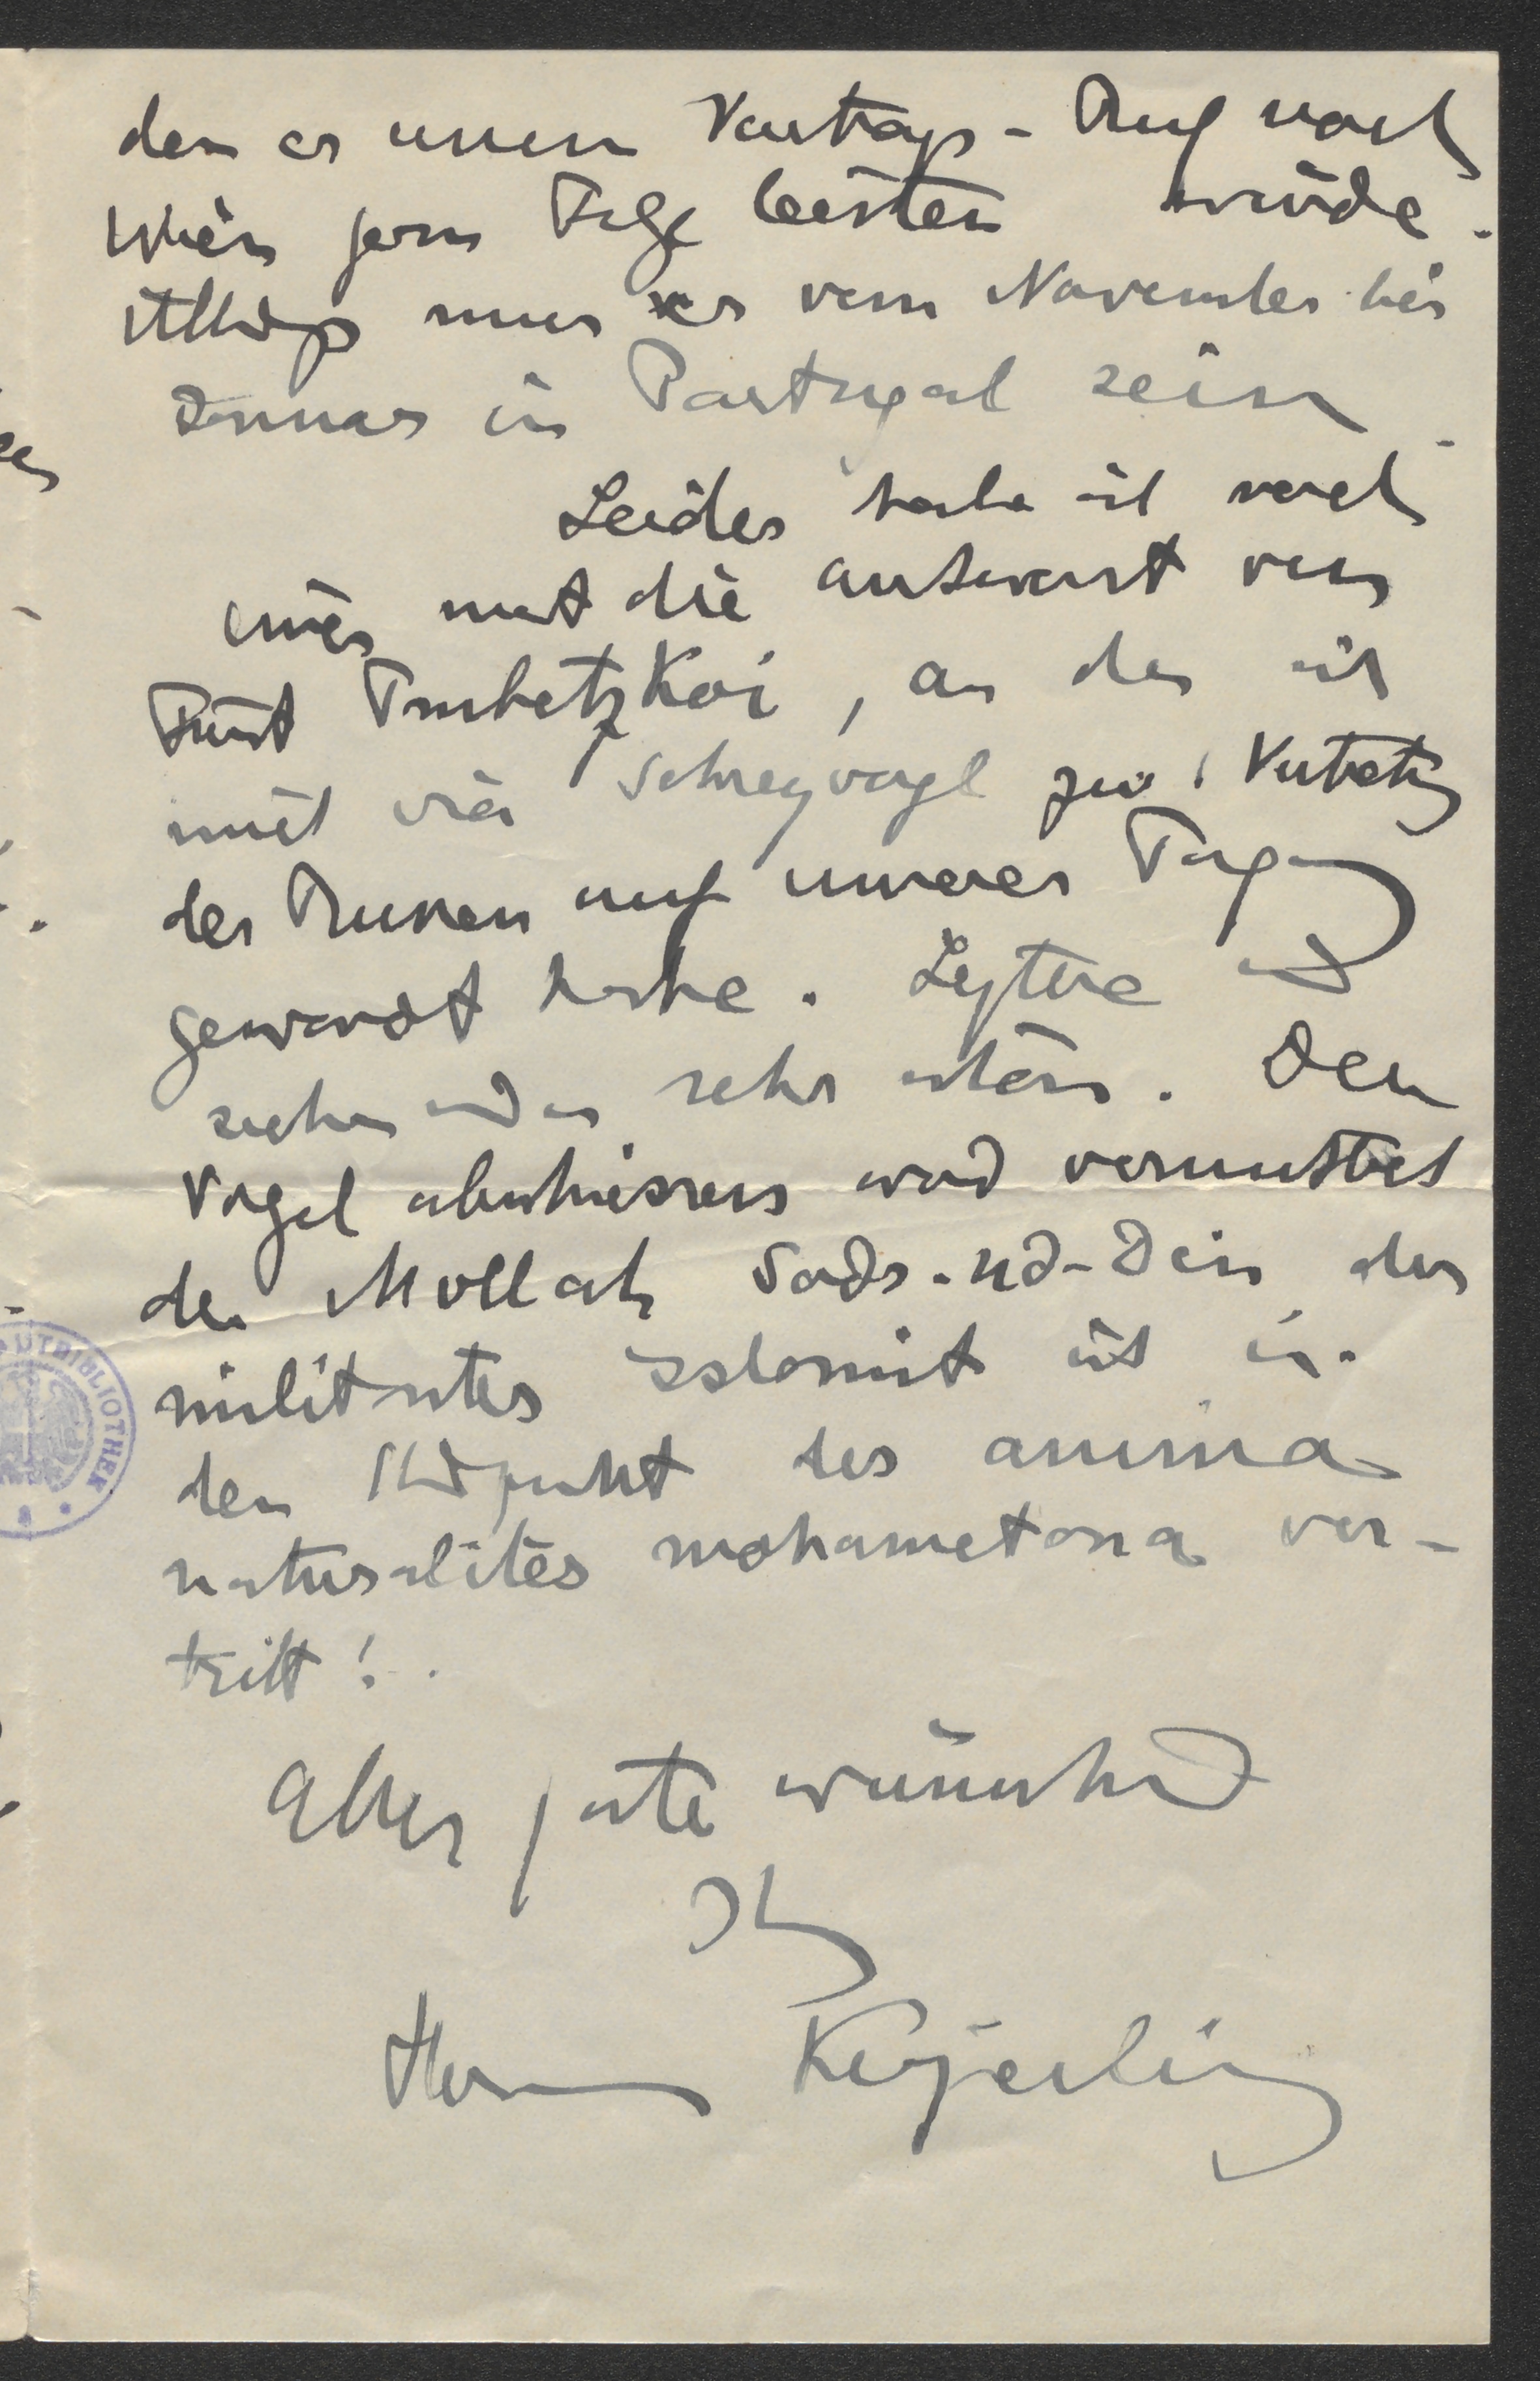 dem er einem Vortrags-Ruf nach
Wien gern Folge leisten würde.
Allerdings muss er vom November bis
Januar in Portugal sein.
Leider habe ich noch
immer nicht die Antwort von
Fürst Trubetzkoi, an den ich
mich via Schreyvogl zur Vertretung
der Russen auf unserer Tagung
gewandt habe. Letztere wird
sehr intens. Den
Vogel abschiessen wird vermutlich
der Mollah Sadr-ud-Din der
militanter Islamist ist u.
den Standpunkt des anima
naturalites mohametana ver-
tritt!
Alles gute wünschend
Ihr
Hermann Keyserling
UTBIBLIOTHEK